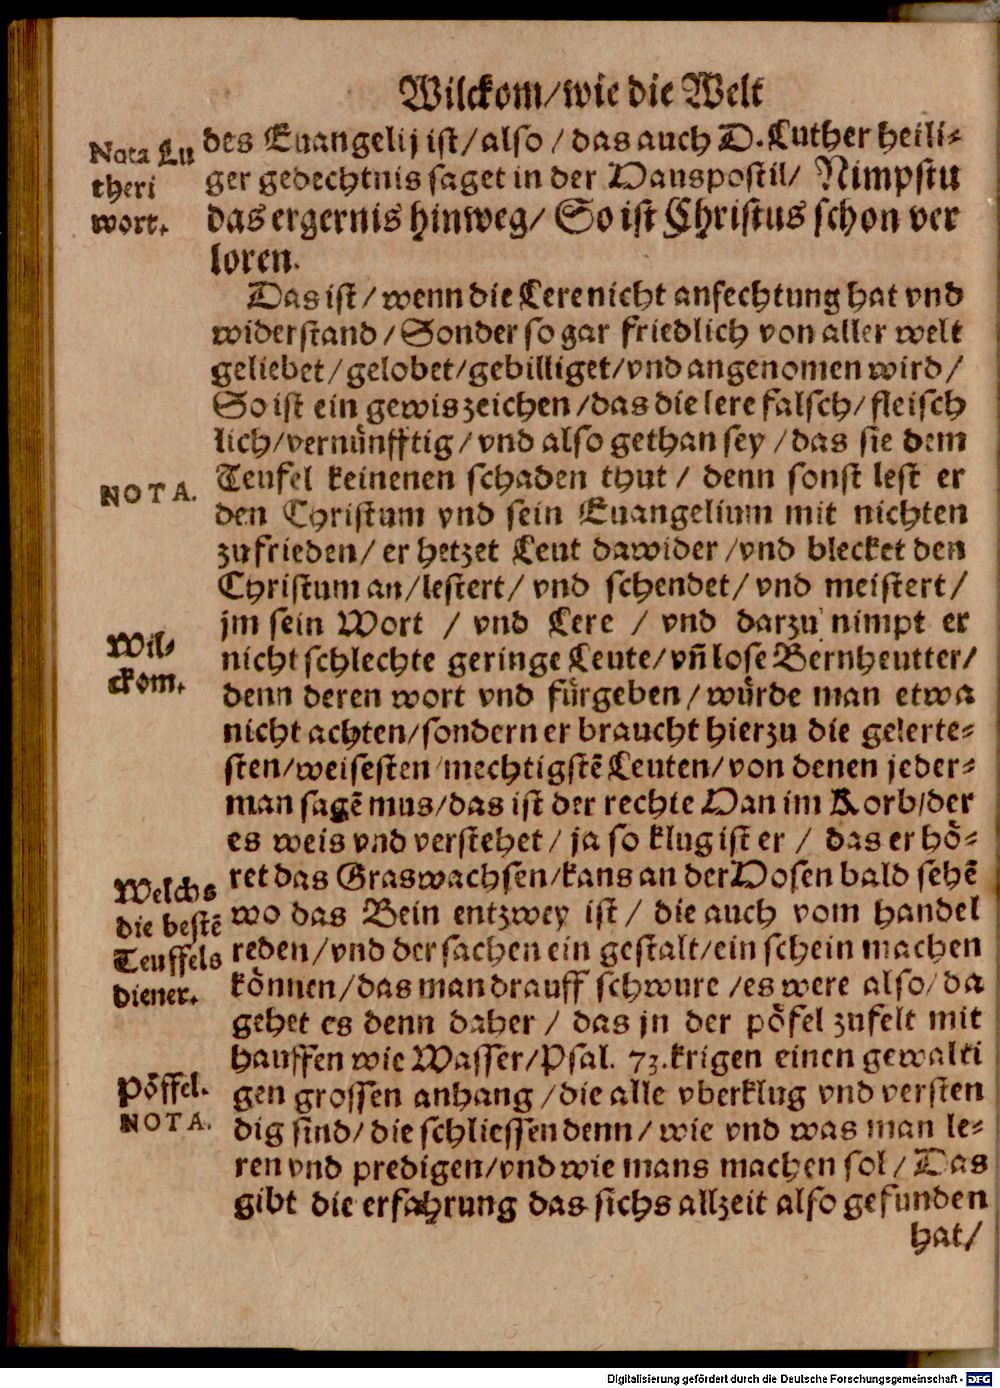 Wilckom/wie die Welt
Nota Lu
theri
wort.
des Euangelij ist/also/das auch D. Luther heili-
ger gedechtnis saget in der Hauspostil/ Nimpstu
das ergernis hinweg/ So ist Christus schon ver
loren.
Das ist/wenn die Lere nicht anfechtung hat vnd
widerstand/Sonder so gar friedlich von aller welt
geliebet/gelobet/gebilliget/vnd angenomen wird/
So ist ein gewis zeichen/das die lere falsch/fleisch
lich/vernünfftig/vnd also gethan sey/das sie dem
NOTA.
Teufel keinenen schaden thut/ denn sonst lest er
den Christum vnd sein Euangelium mit nichten
zufrieden/er hetzet Leut dawider/vnd blecket den
Christum an/lestert/ vnd schendet/vnd meistert/
jm sein Wort / vnd Lere / vnd darzu nimpt er
Wil-
ckom.
nicht schlechte geringe Leute/vñ lose Bernheutter/
denn deren wort vnd fürgeben/würde man etwa
nicht achten/sondern er braucht hierzu die gelerte-
sten/weisesten/mechtigstē Leuten/von denen jeder-
man sagē mus/das ist der rechte Han im Korb/der
es weis vnd verstehet/ja so klug ist er / das er hö-
Welchs
die bestē
Teuffels
diener.
ret das Graswachsen/kans an der Hosen bald sehē
wo das Bein entzwey ist/ die auch vom handel
reden/vnd der sachen ein gestalt/ein schein machen
können/das man drauff schwure/es were also/da
gehet es denn daher/ das jn der pöfel zufelt mit
hauffen wie Wasser/Psal. 73. krigen einen gewalti
Pöffel.
NOTA.
gen grossen anhang/die alle vberklug vnd versten
dig sind/die schliessen denn/wie vnd was man le-
ren vnd predigen/vnd wie mans machen sol/Das
gibt die erfahrung das sichs allzeit also gefunden
hat/
Digitalisierung gefördert durch die Deutsche Forschungsgemeinschaft - DFG